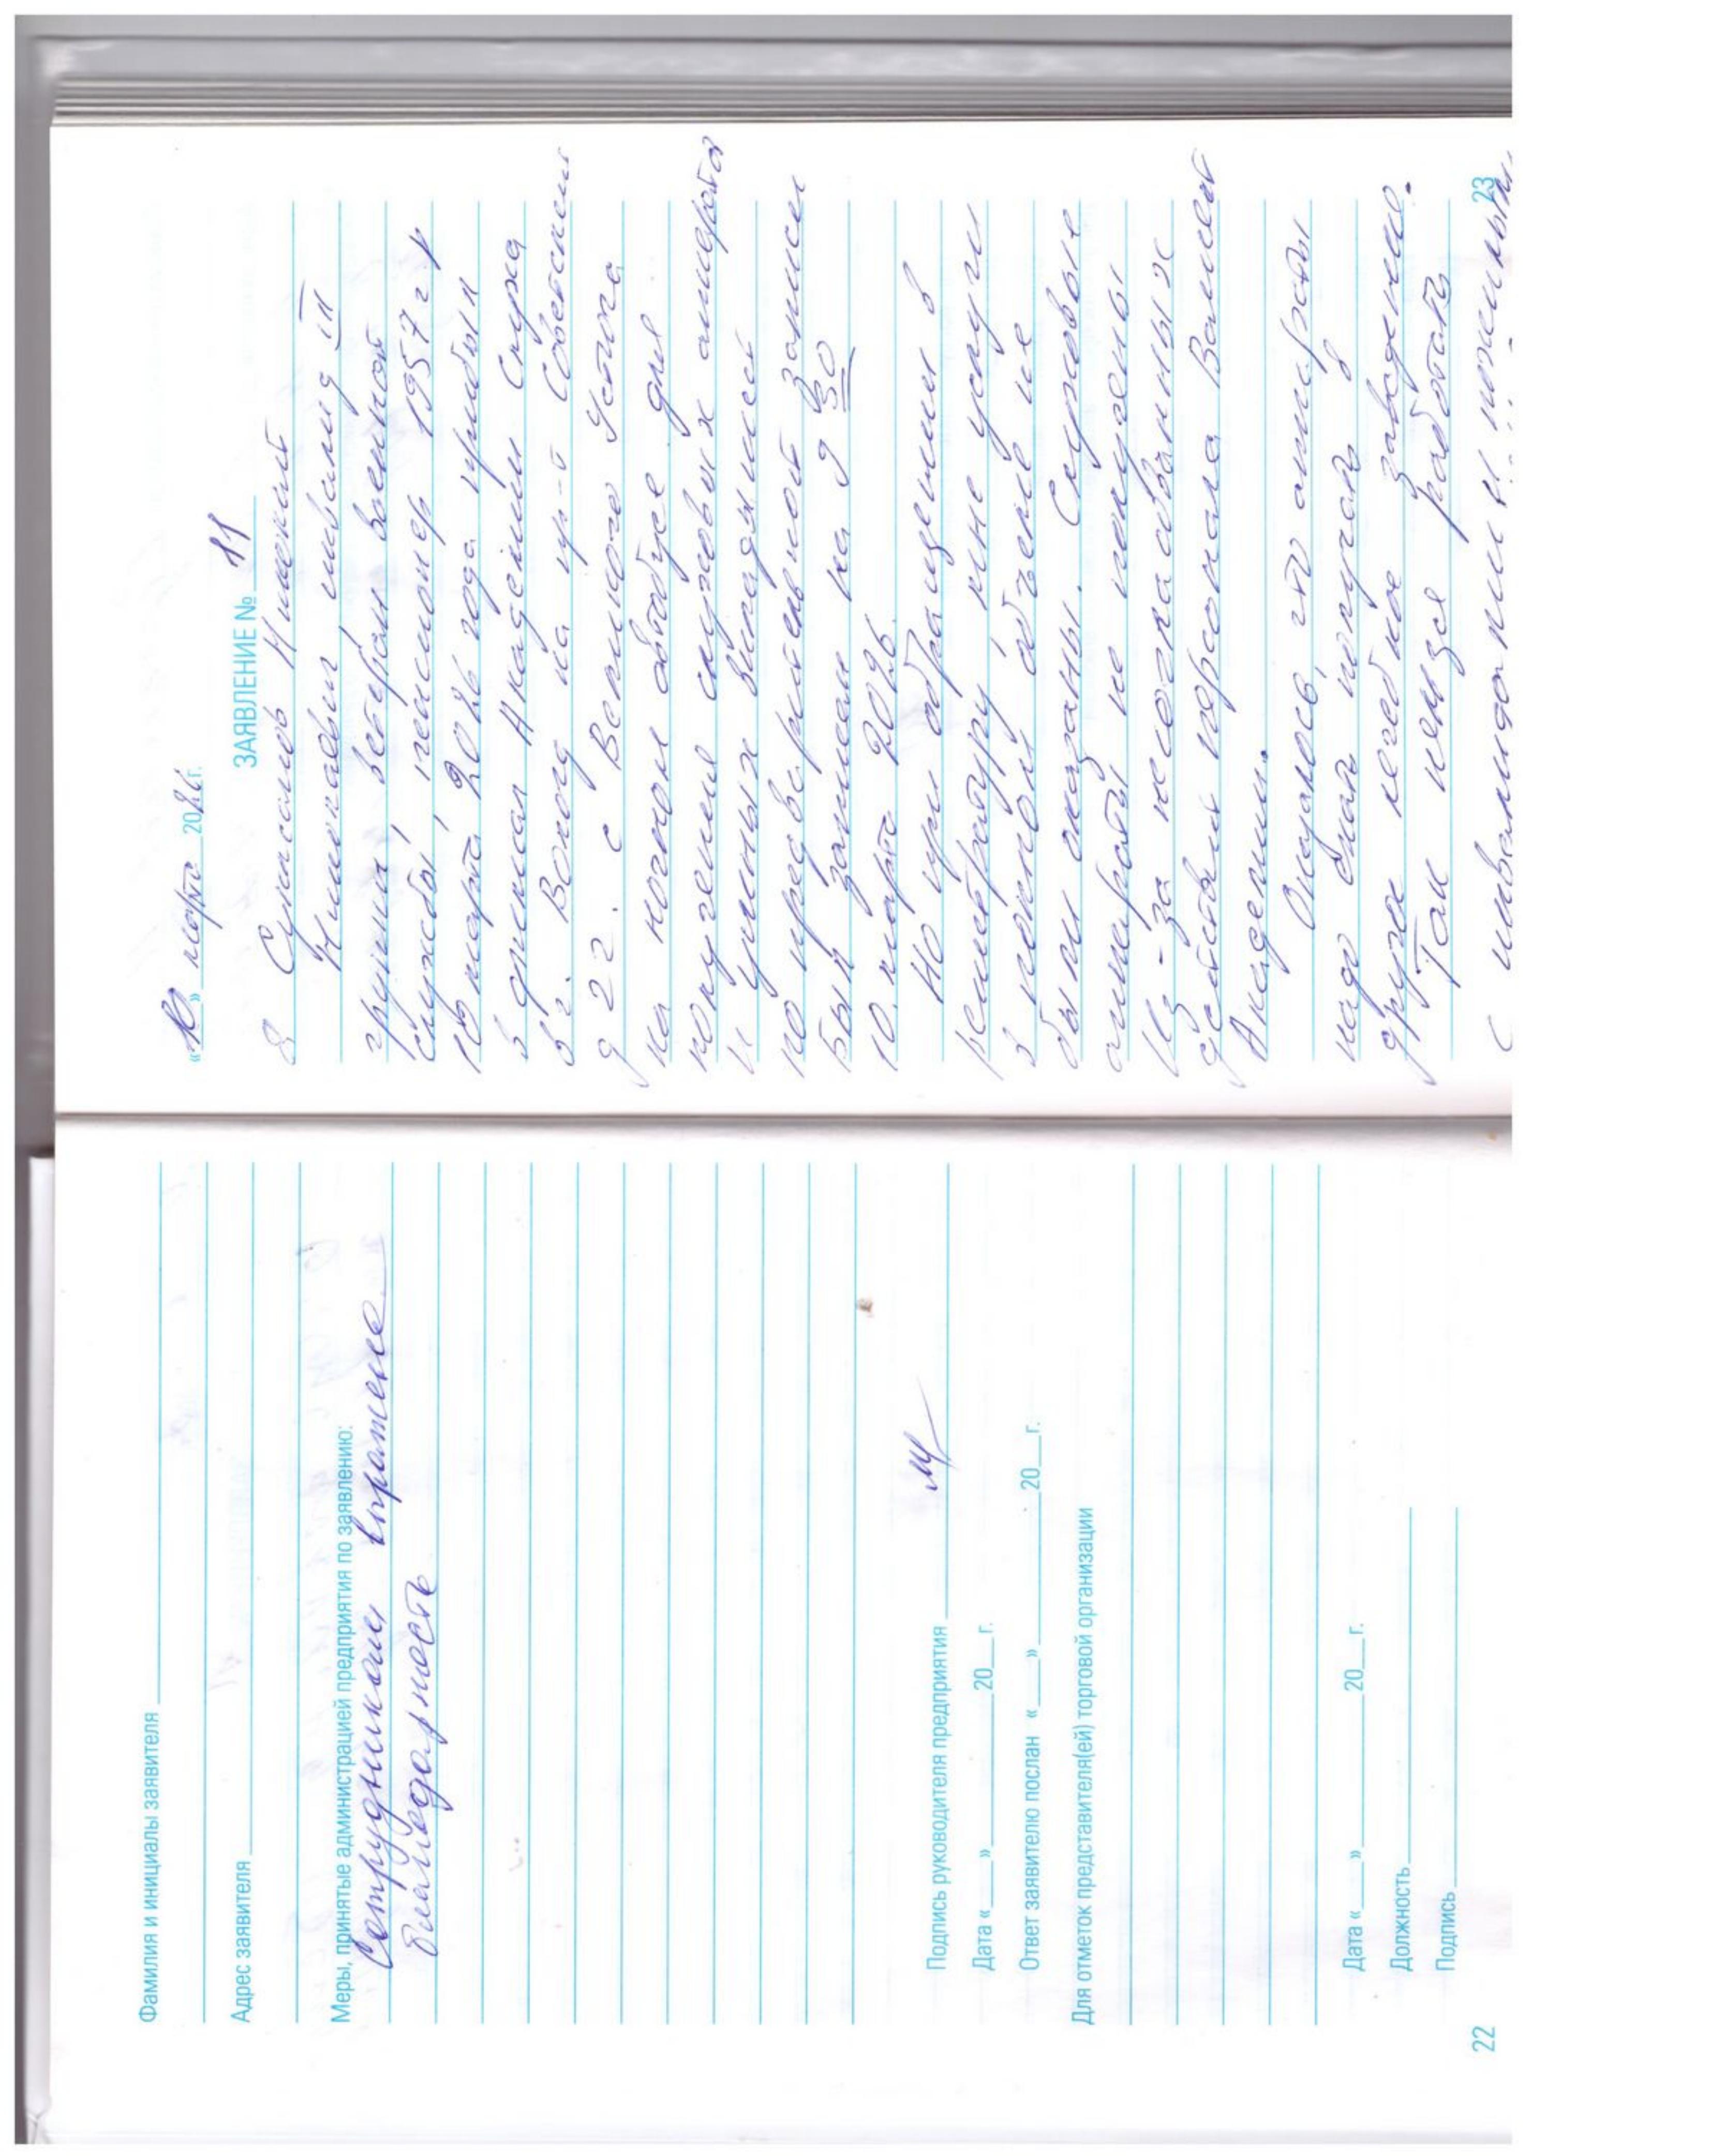 Фамилия и инициалы заявителя
Адрес заявителя
Меры, принятые администрацией предприятия по заявлению:
Сотрудникам
благодарность
Подпись руководителя предприятия
Дата «___» ______ 20__г.
Ответ заявителю послан «___» ______ 20__г.
Для отметок представителя(ей) торговой организации
Дата «___» ______ 20__г.
Должность
Подпись
22
«10» марта 2026г.
ЗАЯВЛЕНИЕ № 11
Николай
Николаевич, инвалид III
группы, ветеран военной
службы, пенсионер 1957 г
10 марта 2026 года прибыл
в филиал Академии слуха
в г. Вологд на пр-т Советский
д 22. с Великого Устюга
на ночном автобусе для
получения слуховых аппаратов
и ушных вкладышей
по предварительной записи
был записан на 9 30
10. марта 2026.
Но при обращении в
регистратуру, мне услуги
в полном объеме не
были оказаны. Слуховые
аппараты не получены
Из-за несогласованных
действий персонала Вашей
Академии.
Оказалось, что аппараты
надо было получать в
другом лечебное заведение.
Так нельзя работать
с инвалидами и пожилыми
23